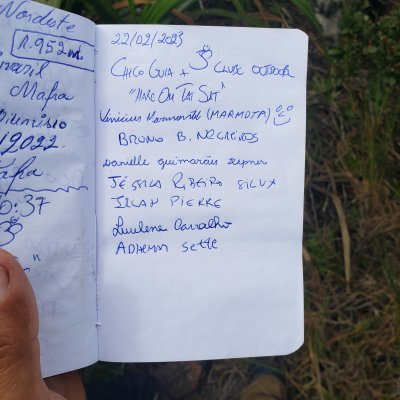 Nordeste
1.952m.
Brasil
Mafra
19022.
Mafra
0:37
22/02/2023
CHICO GUIA + ॐ CLUBE OUTDOOR
"HARE OM TAT SAT"
Vinicius (MARMOTA)
BRUNO B. NEGREIROS
Danielle Guimarães
JÉSSICA RIBEIRO SILVA
ILLAN PIERRE
Luilene Carvalho
ADHEMAR SETTE